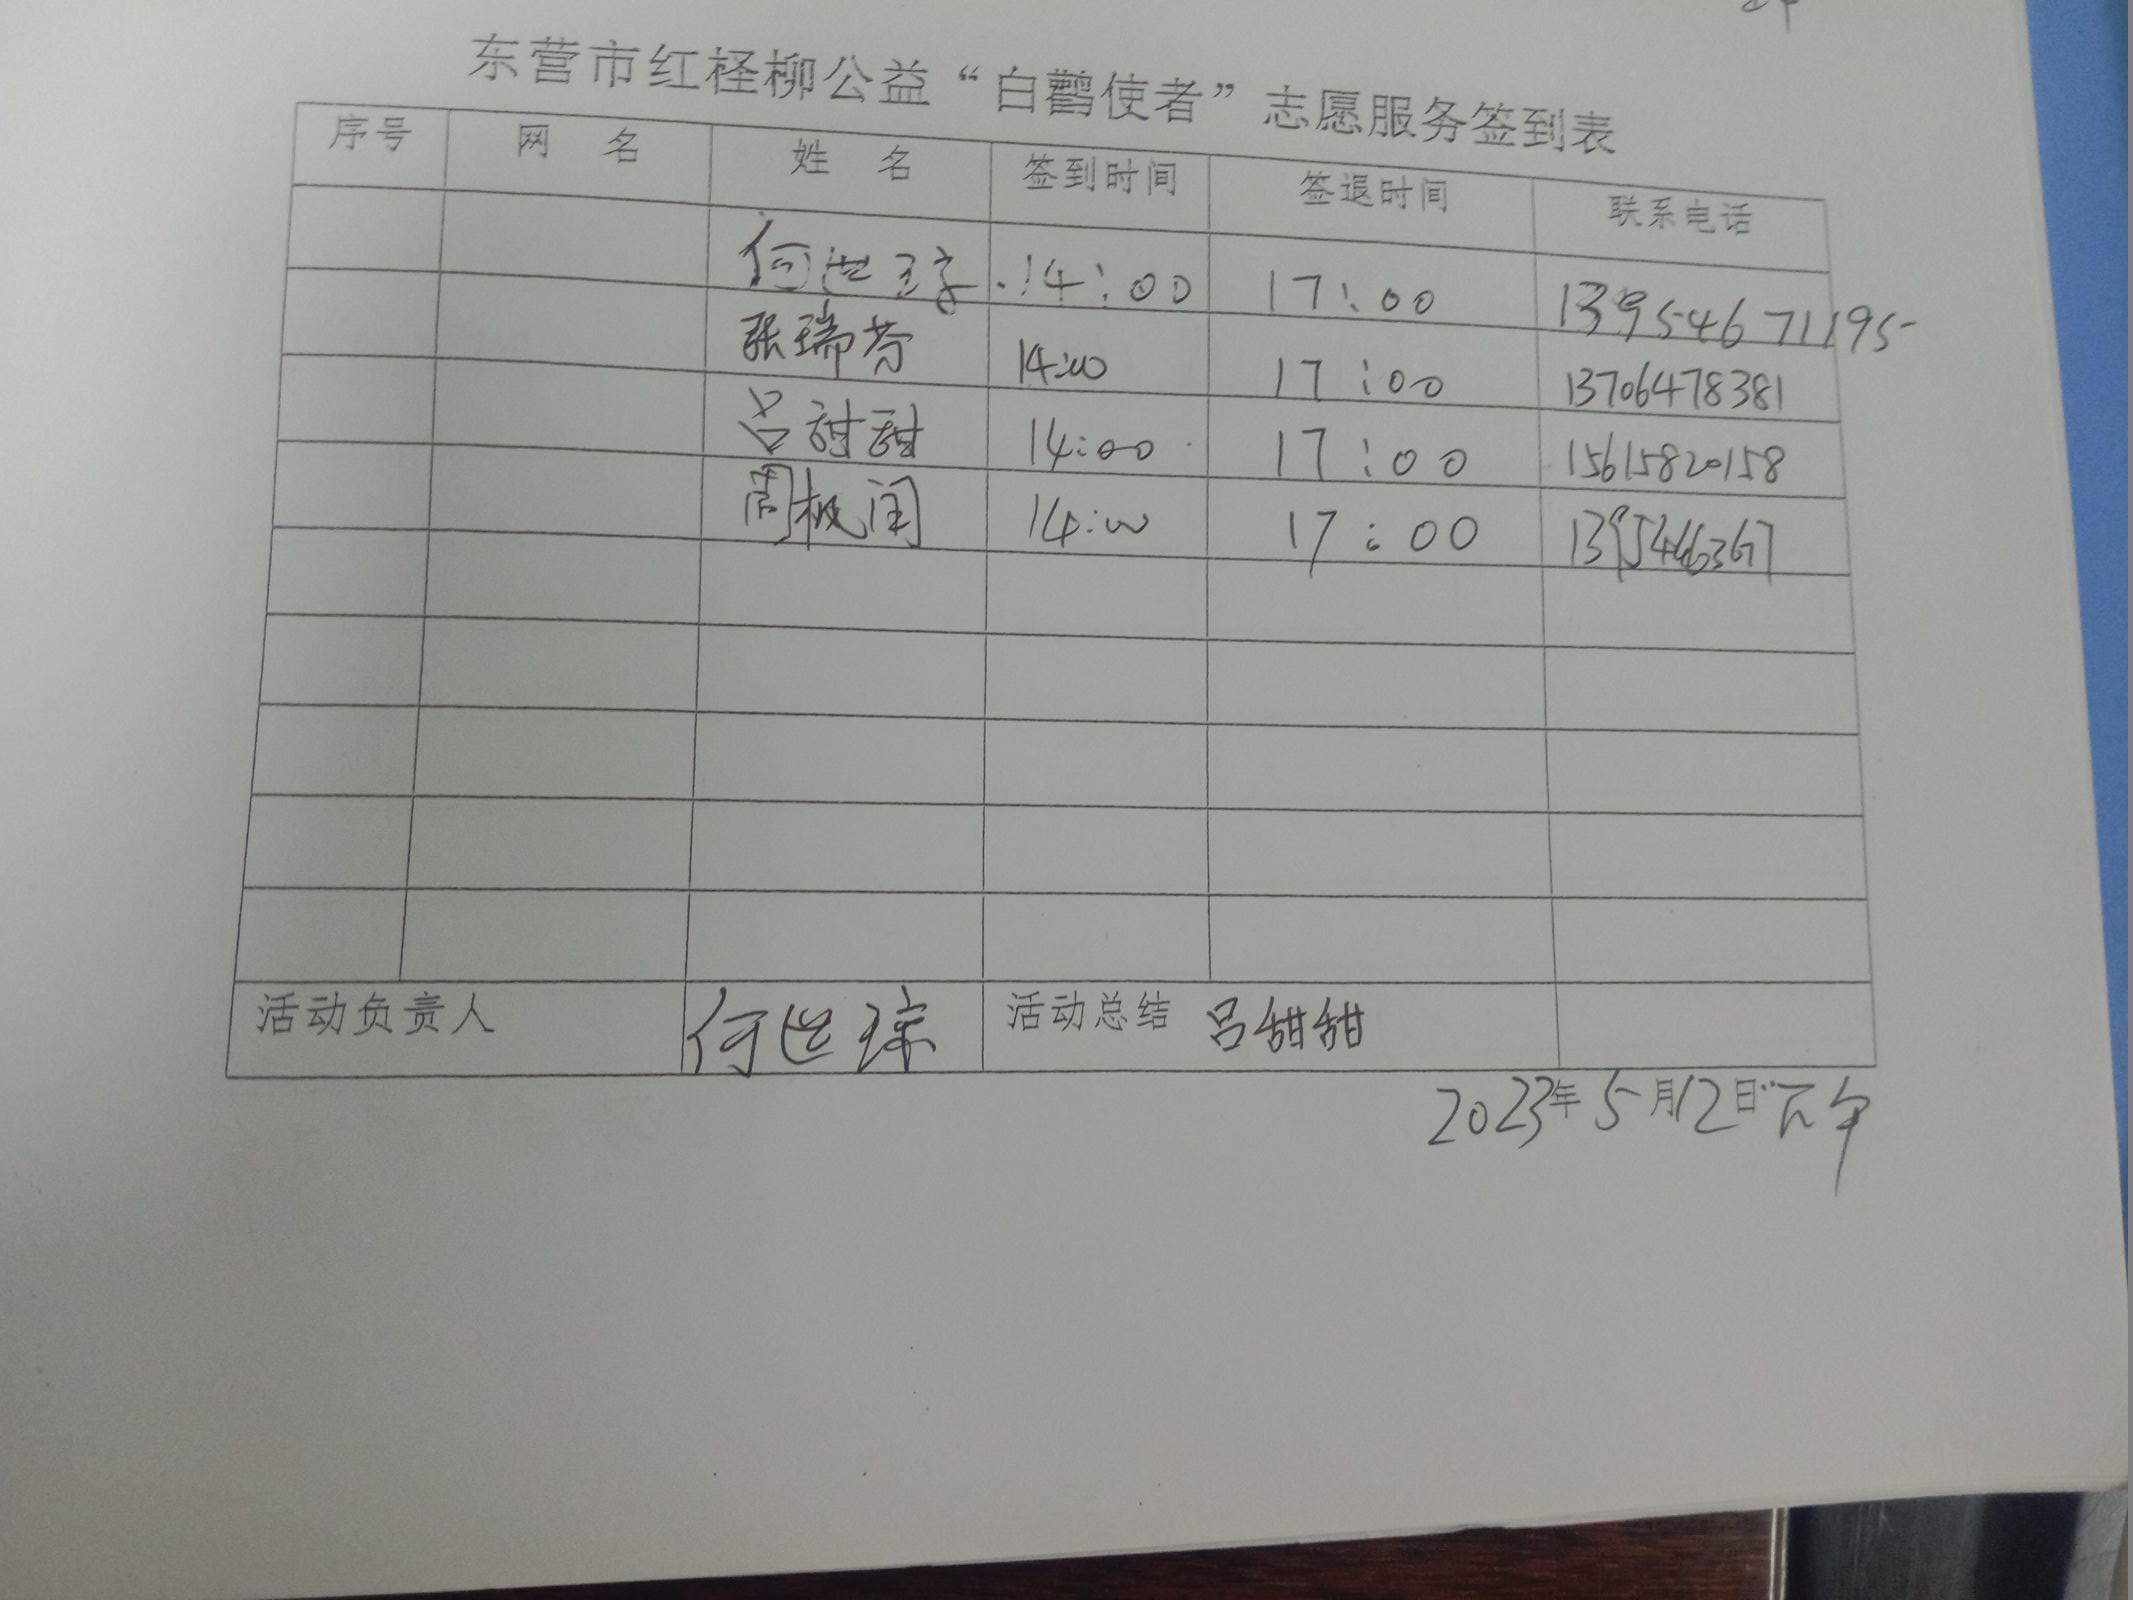 东营市红柽柳公益“白鹳使者”志愿服务签到表
序号 网 名 姓 名 签到时间 签退时间 联系电话
何世琼 14:00 17:00 13954671195
张瑞芬 14:00 17:00 13706478381
吕甜甜 14:00 17:00 15615820158
周 14:00 17:00
活动负责人 何世琼 活动总结 吕甜甜
2023年5月12日下午